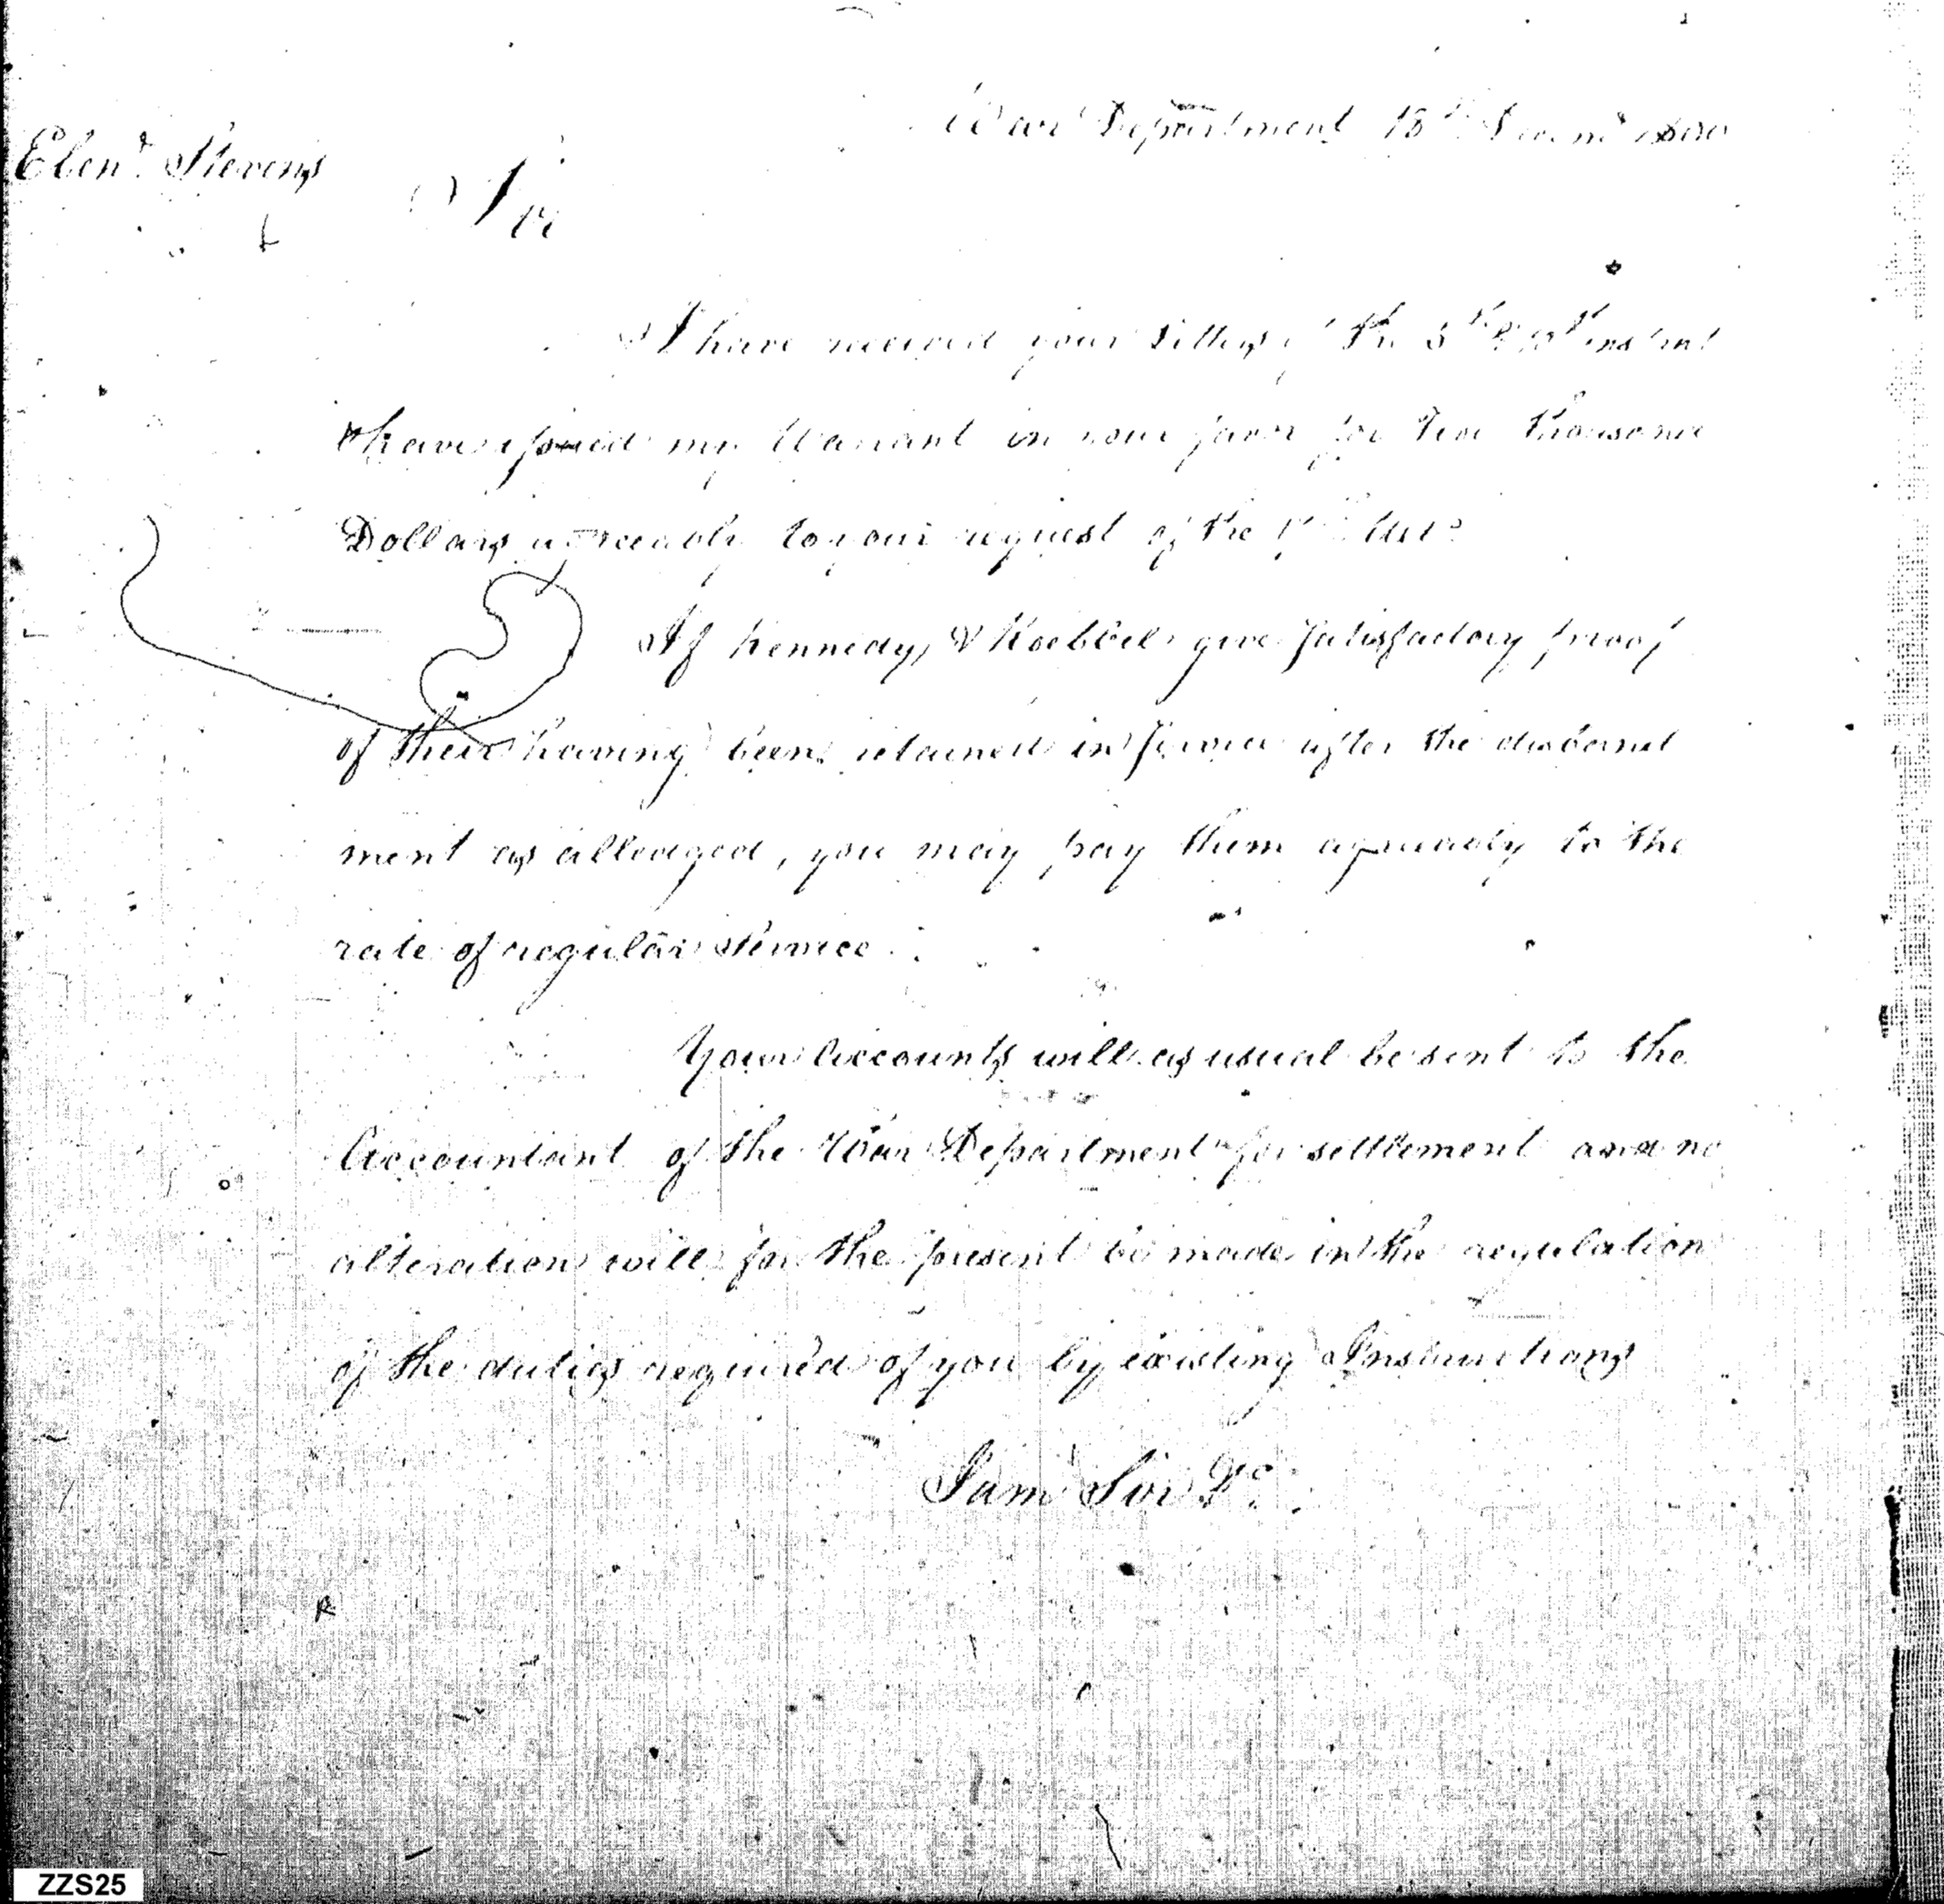 War Department 15th Decemr 1800
Ebenr Stevens
Sir
I have received your Letters of the 5th & 10th instant
& have issued my Warrant in your favor for Two thousand
Dollars agreeably to your request of the
If Kennedy, & give satisfactory proof
of their having been retained in service after the disband
ment as alledged, you may pay them agreeably to the
rate of regular Service.
Your Accounts will as usual be sent to the
Accountant of the War Department for settlement and no
alteration will for the present be made in the regulation
of the duties required of you by existing Instructions
I am Sir &c.
ZZS25